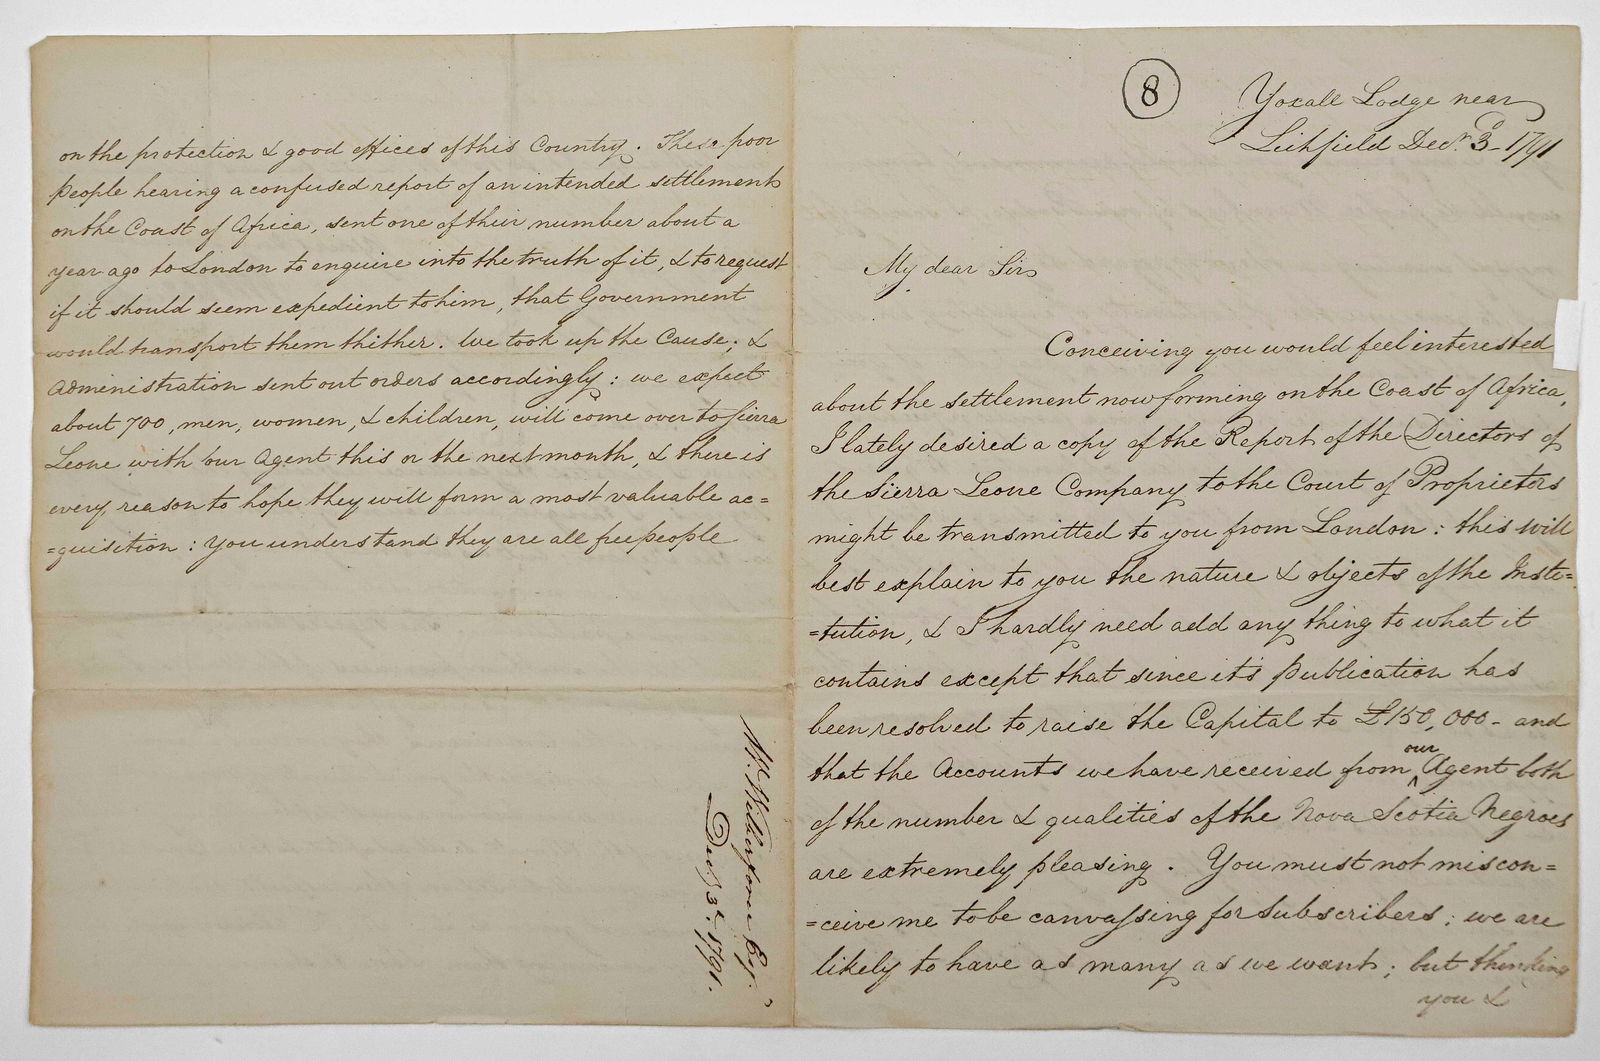 8
Yoxall Lodge near
Lichfield Decr. 3d- 1791
My dear Sir
Conceiving you would feel interested
about the settlement now forming on the Coast of Africa,
I lately desired a copy of the Report of the Directors of
the Sierra Leone Company to the Court of Proprietors
might be transmitted to you from London: this will
best explain to you the nature & objects of the Insti=
=tution, & I hardly need add any thing to what it
contains except that since it's publication has
been resolved to raise the Capital to £150,000- and
that the Accounts we have received from our Agent both
of the number & qualities of the Nova Scotia Negroes
are extremely pleasing. You must not miscon=
=ceive me to be canvassing for Subscribers; we are
likely to have as many as we want; but thinking
you &
on the protection & good offices of this Country. These poor
people hearing a confused report of an intended settlement
on the Coast of Africa, sent one of their number about a
year ago to London to enquire into the truth of it, & to request
if it should seem expedient to him, that Government
would transport them thither. We took up the Cause; &
Administration sent out orders accordingly: we expect
about 700, men, women, & children, will come over to Sierra
Leone with our Agent this or the next month, & there is
every reason to hope they will form a most valuable ac=
=quisition: you understand they are all free people
Wm. Wilberforce Esqr.
Decr. 3d. 1791.